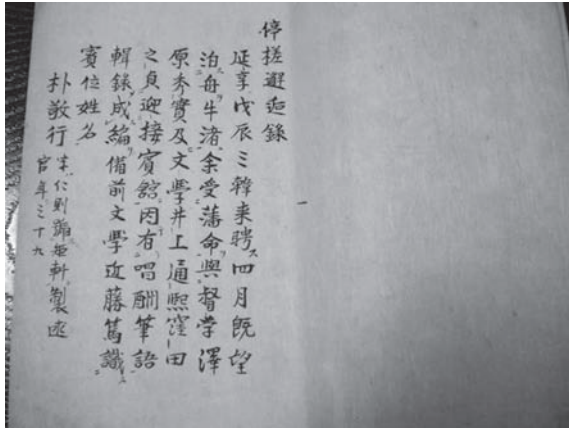 停槎邂逅錄
延享戊辰三韓来聘四月既望
泊舟牛渚余受藩命與督学澤
原秀實及文學井上通熙窪田
之貞迎接賓舘因有唱酬筆語
輯錄成編備前文學近藤篤識
賓位姓名
朴敬行 字仁則號矩軒製述
官年三十九